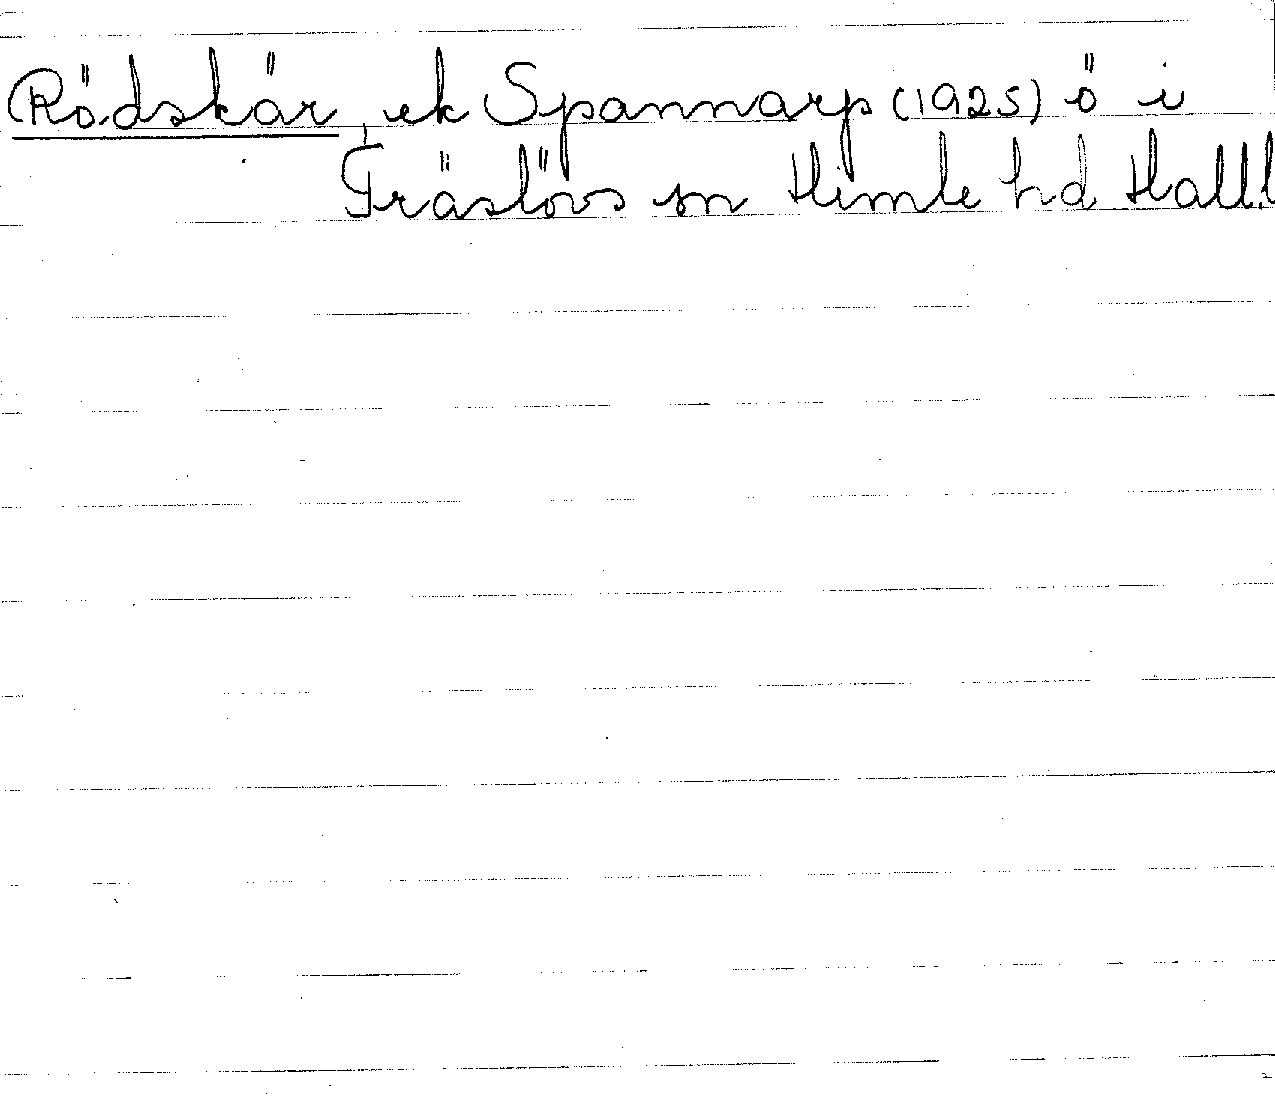 Rödskär, ek Spannarp (1925) ö i
Träslövs sn Himle hd Hall.